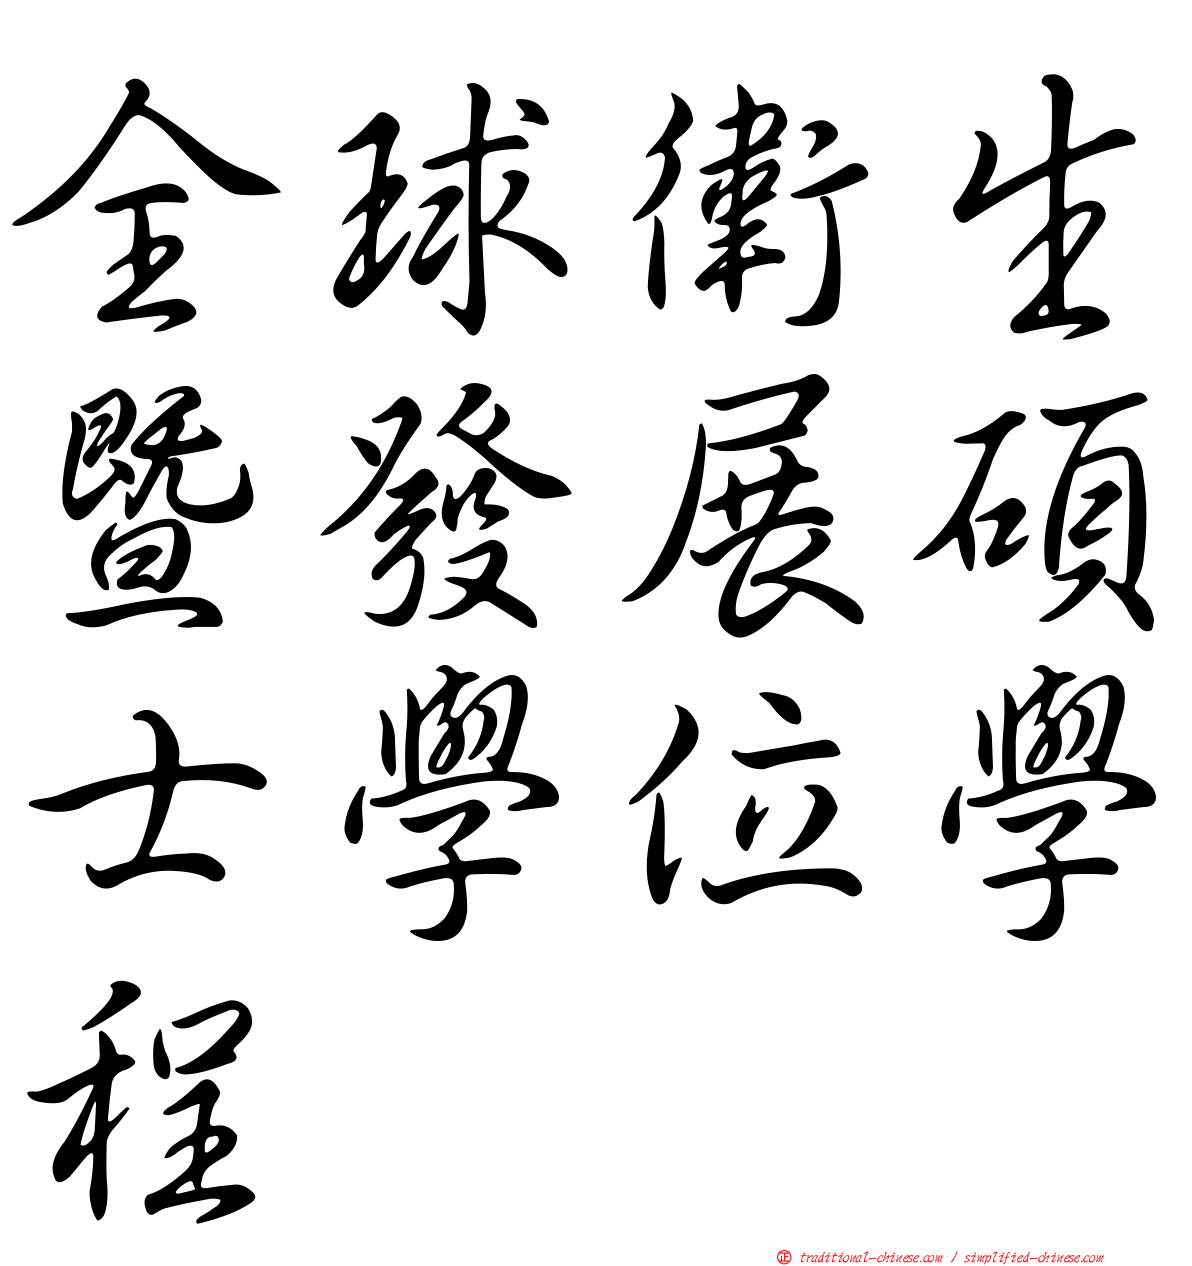 全球衛生
暨發展碩
士學位學
程
正 traditional-chinese.com / simplified-chinese.com